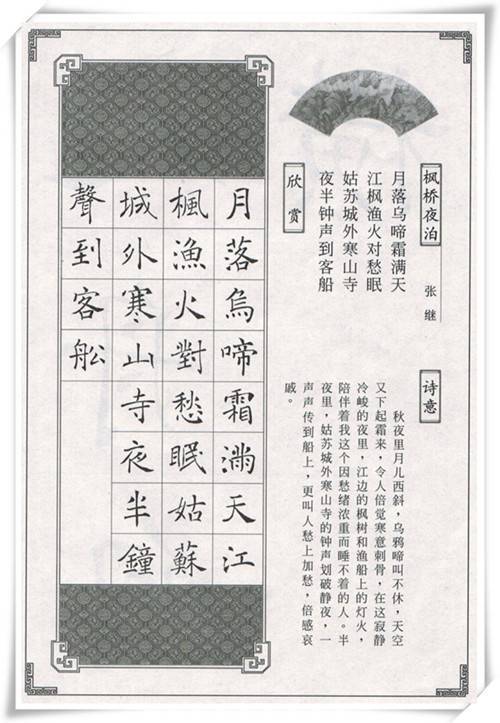 枫桥夜泊
张继
月落乌啼霜满天
江枫渔火对愁眠
姑苏城外寒山寺
夜半钟声到客船
欣赏
诗意
秋夜里月儿西斜，乌鸦啼叫不休，天空
又下起霜来，令人倍觉寒意刺骨，在这寂静
冷峻的夜里，江边的枫树和渔船上的灯火，
陪伴着我这个因愁绪浓重而睡不着的人。半
夜里，姑苏城外寒山寺的钟声划破静夜，一
声声传到船上，更叫人愁上加愁，倍感哀
戚。
月落烏啼霜滿天江
楓漁火對愁眠姑蘇
城外寒山寺夜半鐘
聲到客舩